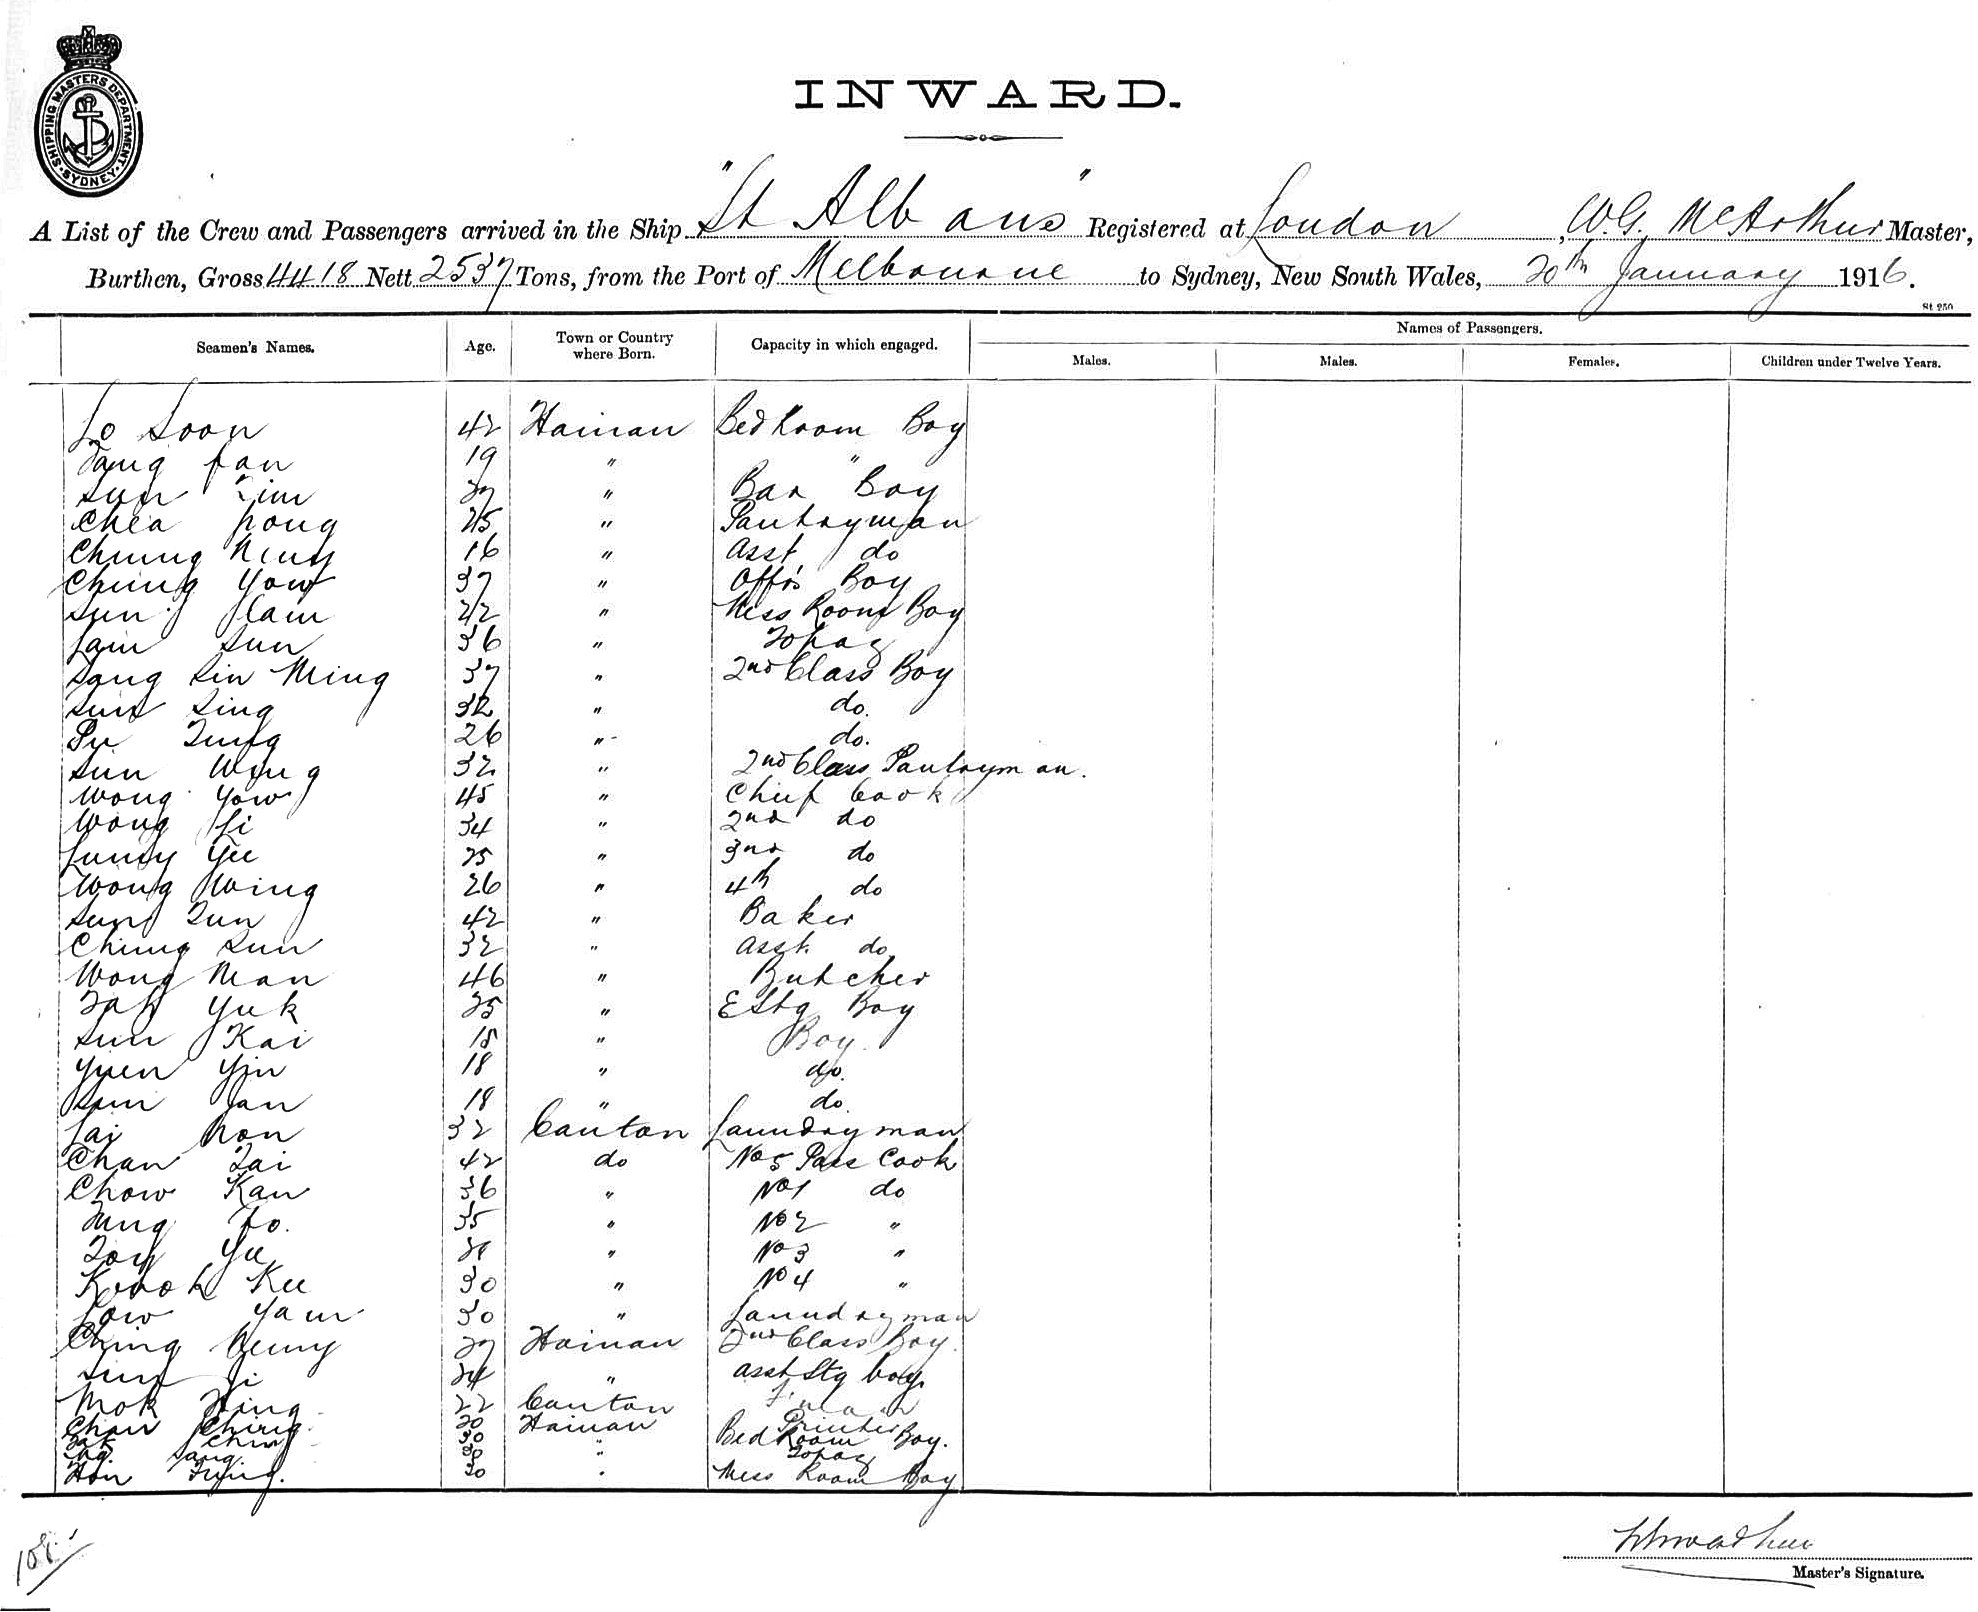 SHIPPING MASTERS DEPARTMENT
SYDNEY
INWARD.
A List of the Crew and Passengers arrived in the Ship "St Albans" Registered at London, W.G. McArthur Master,
Burthen, Gross 4418 Nett 2537 Tons, from the Port of Melbourne to Sydney, New South Wales, 20th January 1916.
St 250
Names of Passengers.
Seamen's Names. Age. Town or Country where Born. Capacity in which engaged. Males. Males. Females. Children under Twelve Years.
Lo Soon 42 Hainan Bed Room Boy
Fan 19 " "
Sun 37 " Bar Boy
Chea Hong 25 " Pantryman
Chung 16 " Asst do
Chung Yow 37 " Offrs Boy
Sun Lam 42 " Mess Room Boy
Lam Sun 36 " Topaz
Sang Sin Ming 37 " 2nd Class Boy
Sun Sing 32 " do.
26 " do.
Sun Wing 32 " 2nd Class Pantryman.
Wong Yow 45 " Chief Cook
Wong Li 34 " 2nd do
Yee 25 " 3rd do
Wong Wing 26 " 4th do
Sun Tun 42 " Baker
Ching Sun 32 " Asst. do
Wong Man 46 " Butcher
Yuk 25 " E Stg Boy
Sun Kai 18 " Boy.
Yuen Yin 18 " do.
Sun Yan 18 " do.
Lai Hon 32 Canton Laundryman
Chan Tai 42 do No 5 Pass Cook
Chow Kan 36 " No 1 do
Fo. 35 " No 2 "
" No 3 "
Kwok Kee 30 " No 4 "
Low Yam 30 " Laundryman
Ching 37 Hainan 2nd Class Boy.
Sun Li 24 " asst Stg boy.
Mok Hing 22 Canton
Chan Ching 20 Hainan Printer
30 " Bed Room Boy.
Sang 30 " Topaz
Hon 20 " Mess Room Boy
108
Master's Signature.